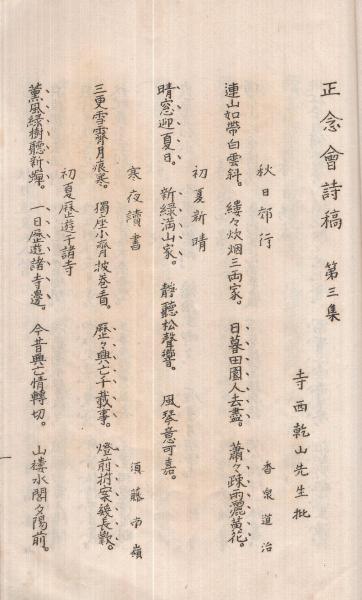 正念會詩稿 第三集
寺西乾山先生批
秋日郊行 香泉道治
連山如帶白雲斜。縷々炊烟三両家。日暮田園人去盡。蕭々疎雨灑黄花。
初夏新晴
晴窓迎夏日。新緑満山家。静聽松聲響。風琴意可嘉。
寒夜讀書 須藤 嶺
三更雪霽月痕寒。獨座小齊披巻看。歴々興亡千載事。燈前拊案幾長歎。
初夏歴遊于諸寺
薫風緑樹聽新蟬。一日歴遊諸寺邊。今昔興亡情轉切。山樓水閣夕陽前。